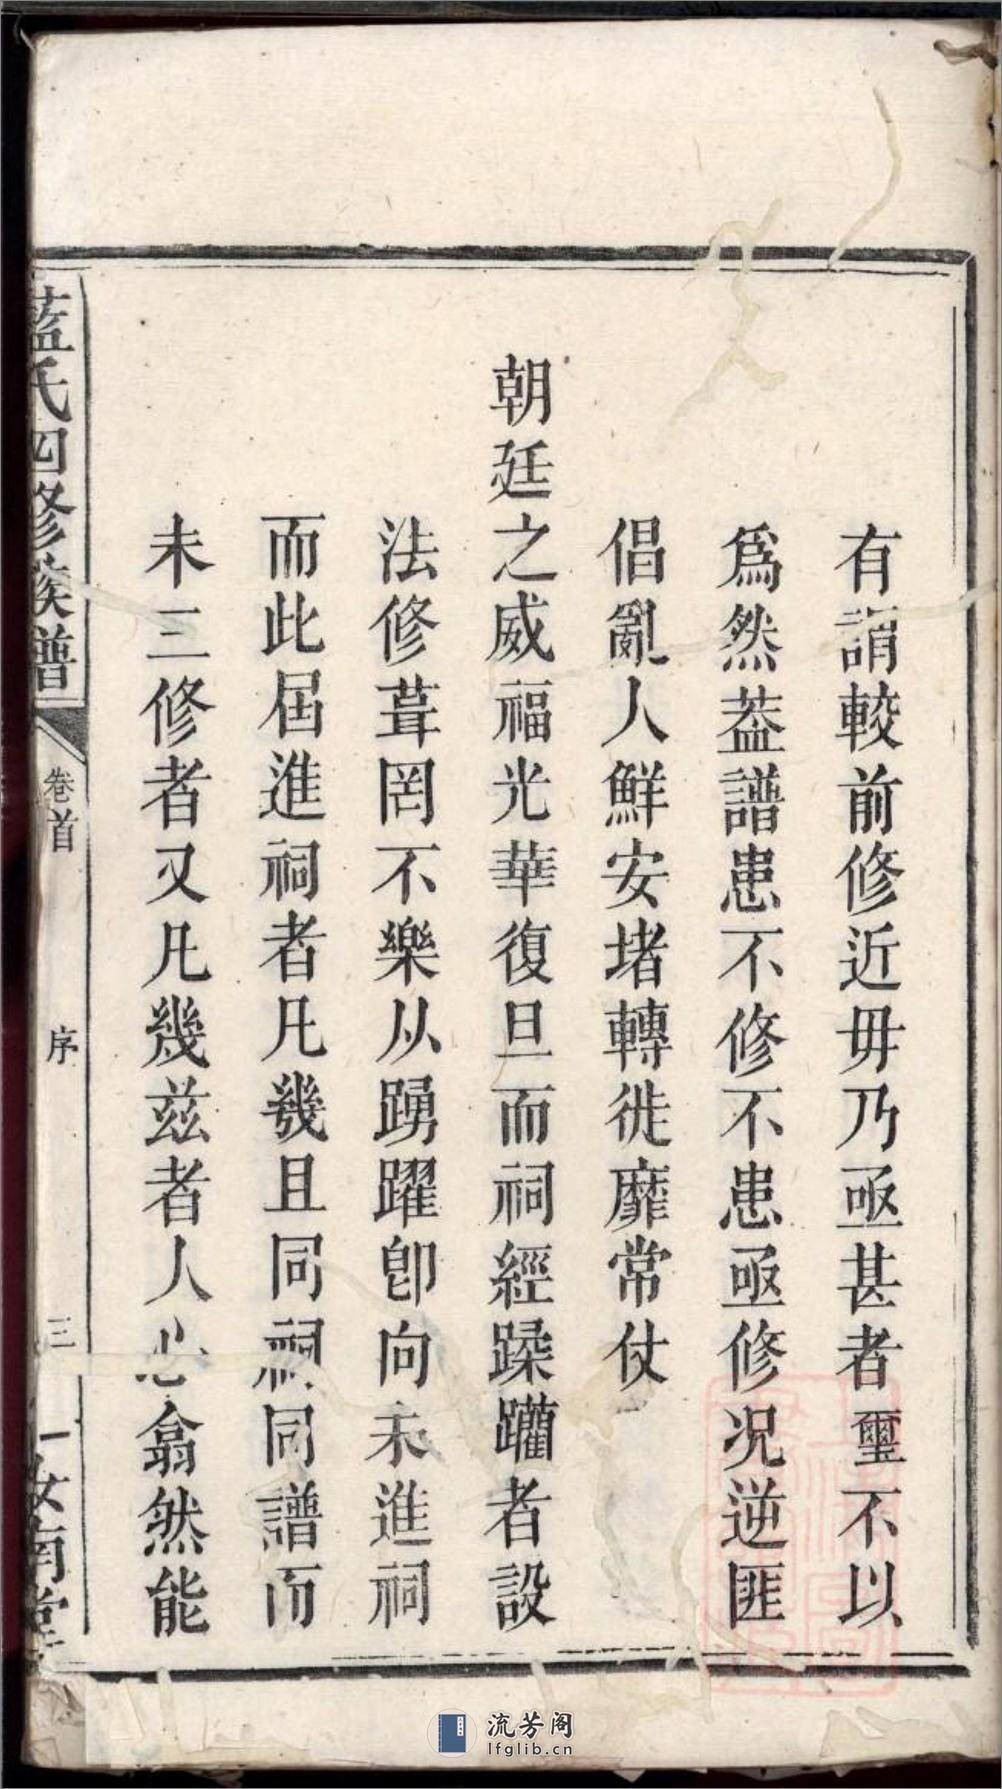 有謂較前修近毋乃亟甚者璽不以
爲然葢譜患不修不患亟修况逆匪
倡亂人鮮安堵轉徙靡常仗
朝廷之威福光華復旦而祠經蹂躪者設
法修葺罔不樂从踴躍卽向未進祠
而此届進祠者凡幾且同祠同譜而
未三修者又凡幾兹者人心翕然能
藍氏四修族譜
卷首
序
三
汝南堂
流芳阁
lfglib.cn